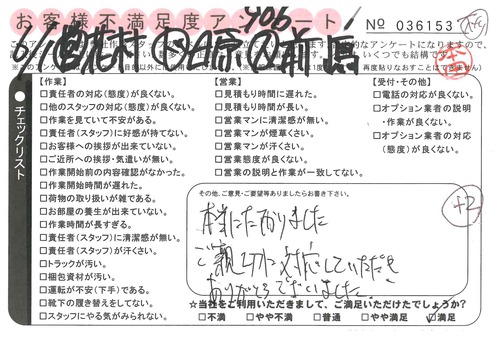 お客様不満足度アンケート
No 036153
チェックリスト
【作業】
□責任者の対応(態度)が良くない。
□他のスタッフの対応(態度)が良くない。
□作業を見ていて不安がある。
□責任者(スタッフ)に好感が持てない。
□お客様への挨拶が出来ていない。
□ご近所への挨拶・気遣いが無い。
□作業開始前の内容確認がなかった。
□作業開始時間が遅れた。
□荷物の取り扱いが雑である。
□お部屋の養生が出来ていない。
□作業時間が長すぎる。
□責任者(スタッフ)に清潔感が無い。
□責任者(スタッフ)が汗くさい。
□トラックが汚い。
□梱包資材が汚い。
□運転が不安(下手)である。
□靴下の履き替えをしてない。
□スタッフにやる気がみられない。
【営業】
□見積もり時間に遅れた。
□見積もり時間が長い。
□営業マンに清潔感が無い。
□営業マンが煙草くさい。
□営業マンが汗くさい。
□営業態度が良くない。
□営業の説明と作業が一致してない。
【受付・その他】
□電話の対応が良くない。
□オプション業者の説明
・作業が良くない。
□オプション業者の対応
(態度)が良くない。
その他、ご意見・ご要望等ありましたらお書き下さい。
本当にたすかりました
ご親切に対応していただき
ありがとうございました。
☆当社をご利用いただきまして、ご満足いただけたでしょうか?
□不満 □やや不満 □普通 □やや満足 ☑満足